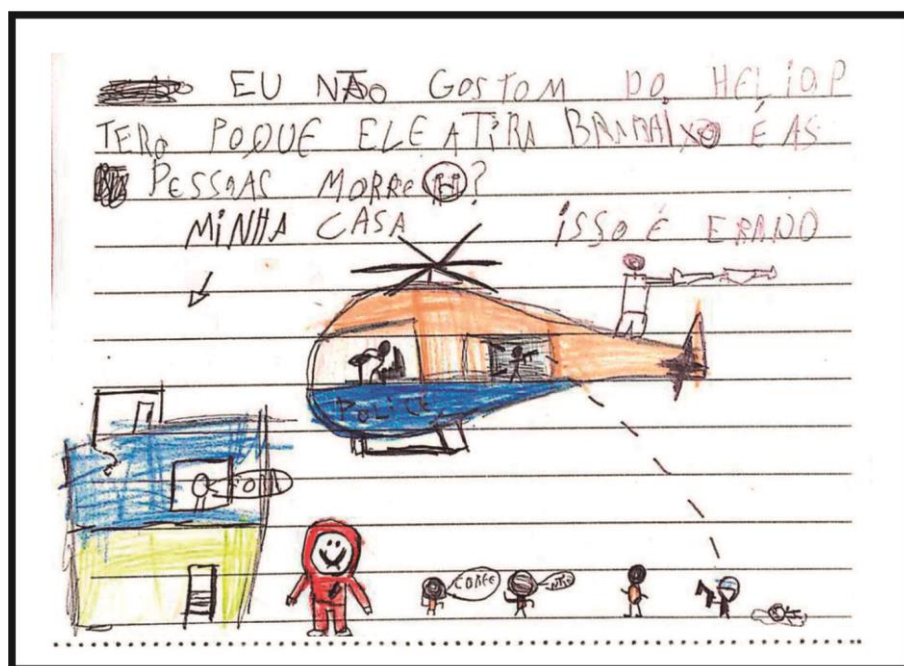 EU NÃO GOSTOM DO HELIOP
TERO POQUE ELE ATIRA BARAIXO É AS
PESSOAS MORRE?
MINHA CASA
ISSO É ERADO
POLICE
CORRE
NÃO